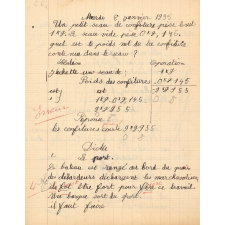 Mardi 8 janvier 1935
Un petit seau de confiture pèse brut
1 Kg. Le seau vide pèse 0 Kg, 145.
quel est le poids net de la confiture
contenue dans le seau ?
Solution Opération
J'achette une seau de : 1 Kg
Poids des confitures 0 145
est :
1 Kg - 0 Kg 145
Erreur
Réponse
les confitures
Dictée
Le port.
Le bateau est rangé au bord du quai
des débardeurs déchargent les marchandises,
il faut être fort pour faire ce travail.
Une barque sort du port.
il faut faire